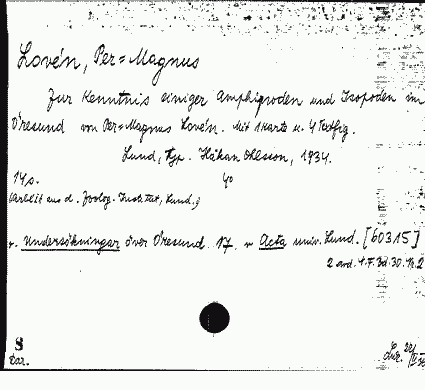 Lovén, Per=Magnus
Zur Kenntnis einiger Amphipoden und Isopoden im
Öresund von Per=Magnus Lovén. Mit 1 Karte u. 4 Textfig.
Lund, Typ. Håkan Ohlsson, 1934.
14 s. 4o
(Arbeit aus d. Zoolog. Institut, Lund.)
v. Undersökningar över Öresund. 17. v. Acta univ. Lund. [60315]
2 avd. N.F. Bd. 30. Nr. 2
S